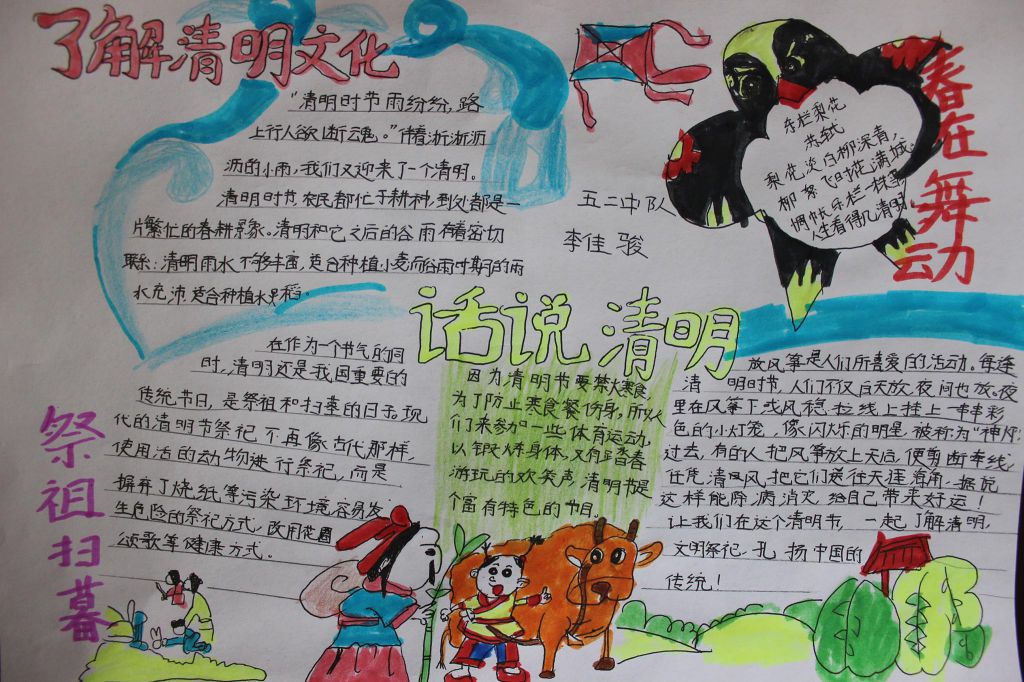 了解清明文化
"清明时节雨纷纷,路
上行人欲断魂。"伴着淅淅沥
沥的小雨,我们又迎来了一个清明。
清明时节农民都忙于耕种,到处都是一
片繁忙的春耕景象。清明和它之后的谷雨有着密切
联系:清明雨水不够丰富,适合种植小麦而谷雨时期的雨
水充沛适合种植水稻。
五二中队
李佳骏
东栏梨花
苏轼
梨花淡白柳深青,
柳絮飞时花满城。
惆怅东栏一株雪
人生看得几清明
春在舞动
话说清明
在作为一个节气的同
时,清明还是我国重要的
传统节日,是祭祖和扫墓的日子,现
代的清明节祭祀不再像古代那样,
使用活的动物进行祭祀,而是
摒弃了烧纸等污染环境容易发
生危险的祭祀方式,改用花圈
颂歌等健康方式。
祭祖扫墓
因为清明节要禁火寒食,
为了防止寒食餐伤身,所以人
们来参加一些体育运动,
以锻炼身体,又有踏春
游玩的欢笑声,清明节是
个富有特色的节日。
放风筝是人们所喜爱的活动。每逢
清明时节,人们不仅白天放,夜间也放。夜
里在风筝下或风稳拉线上挂上一串串彩
色的小灯笼,像闪烁的明星,被称为"神灯"
过去,有的人把风筝放上天后,便剪断牵线,
任凭清风把它们送往天涯海角,据说
这样能除病消灾,给自己带来好运!
让我们在这个清明节,一起了解清明,
文明祭祀,弘扬中国的
传统!